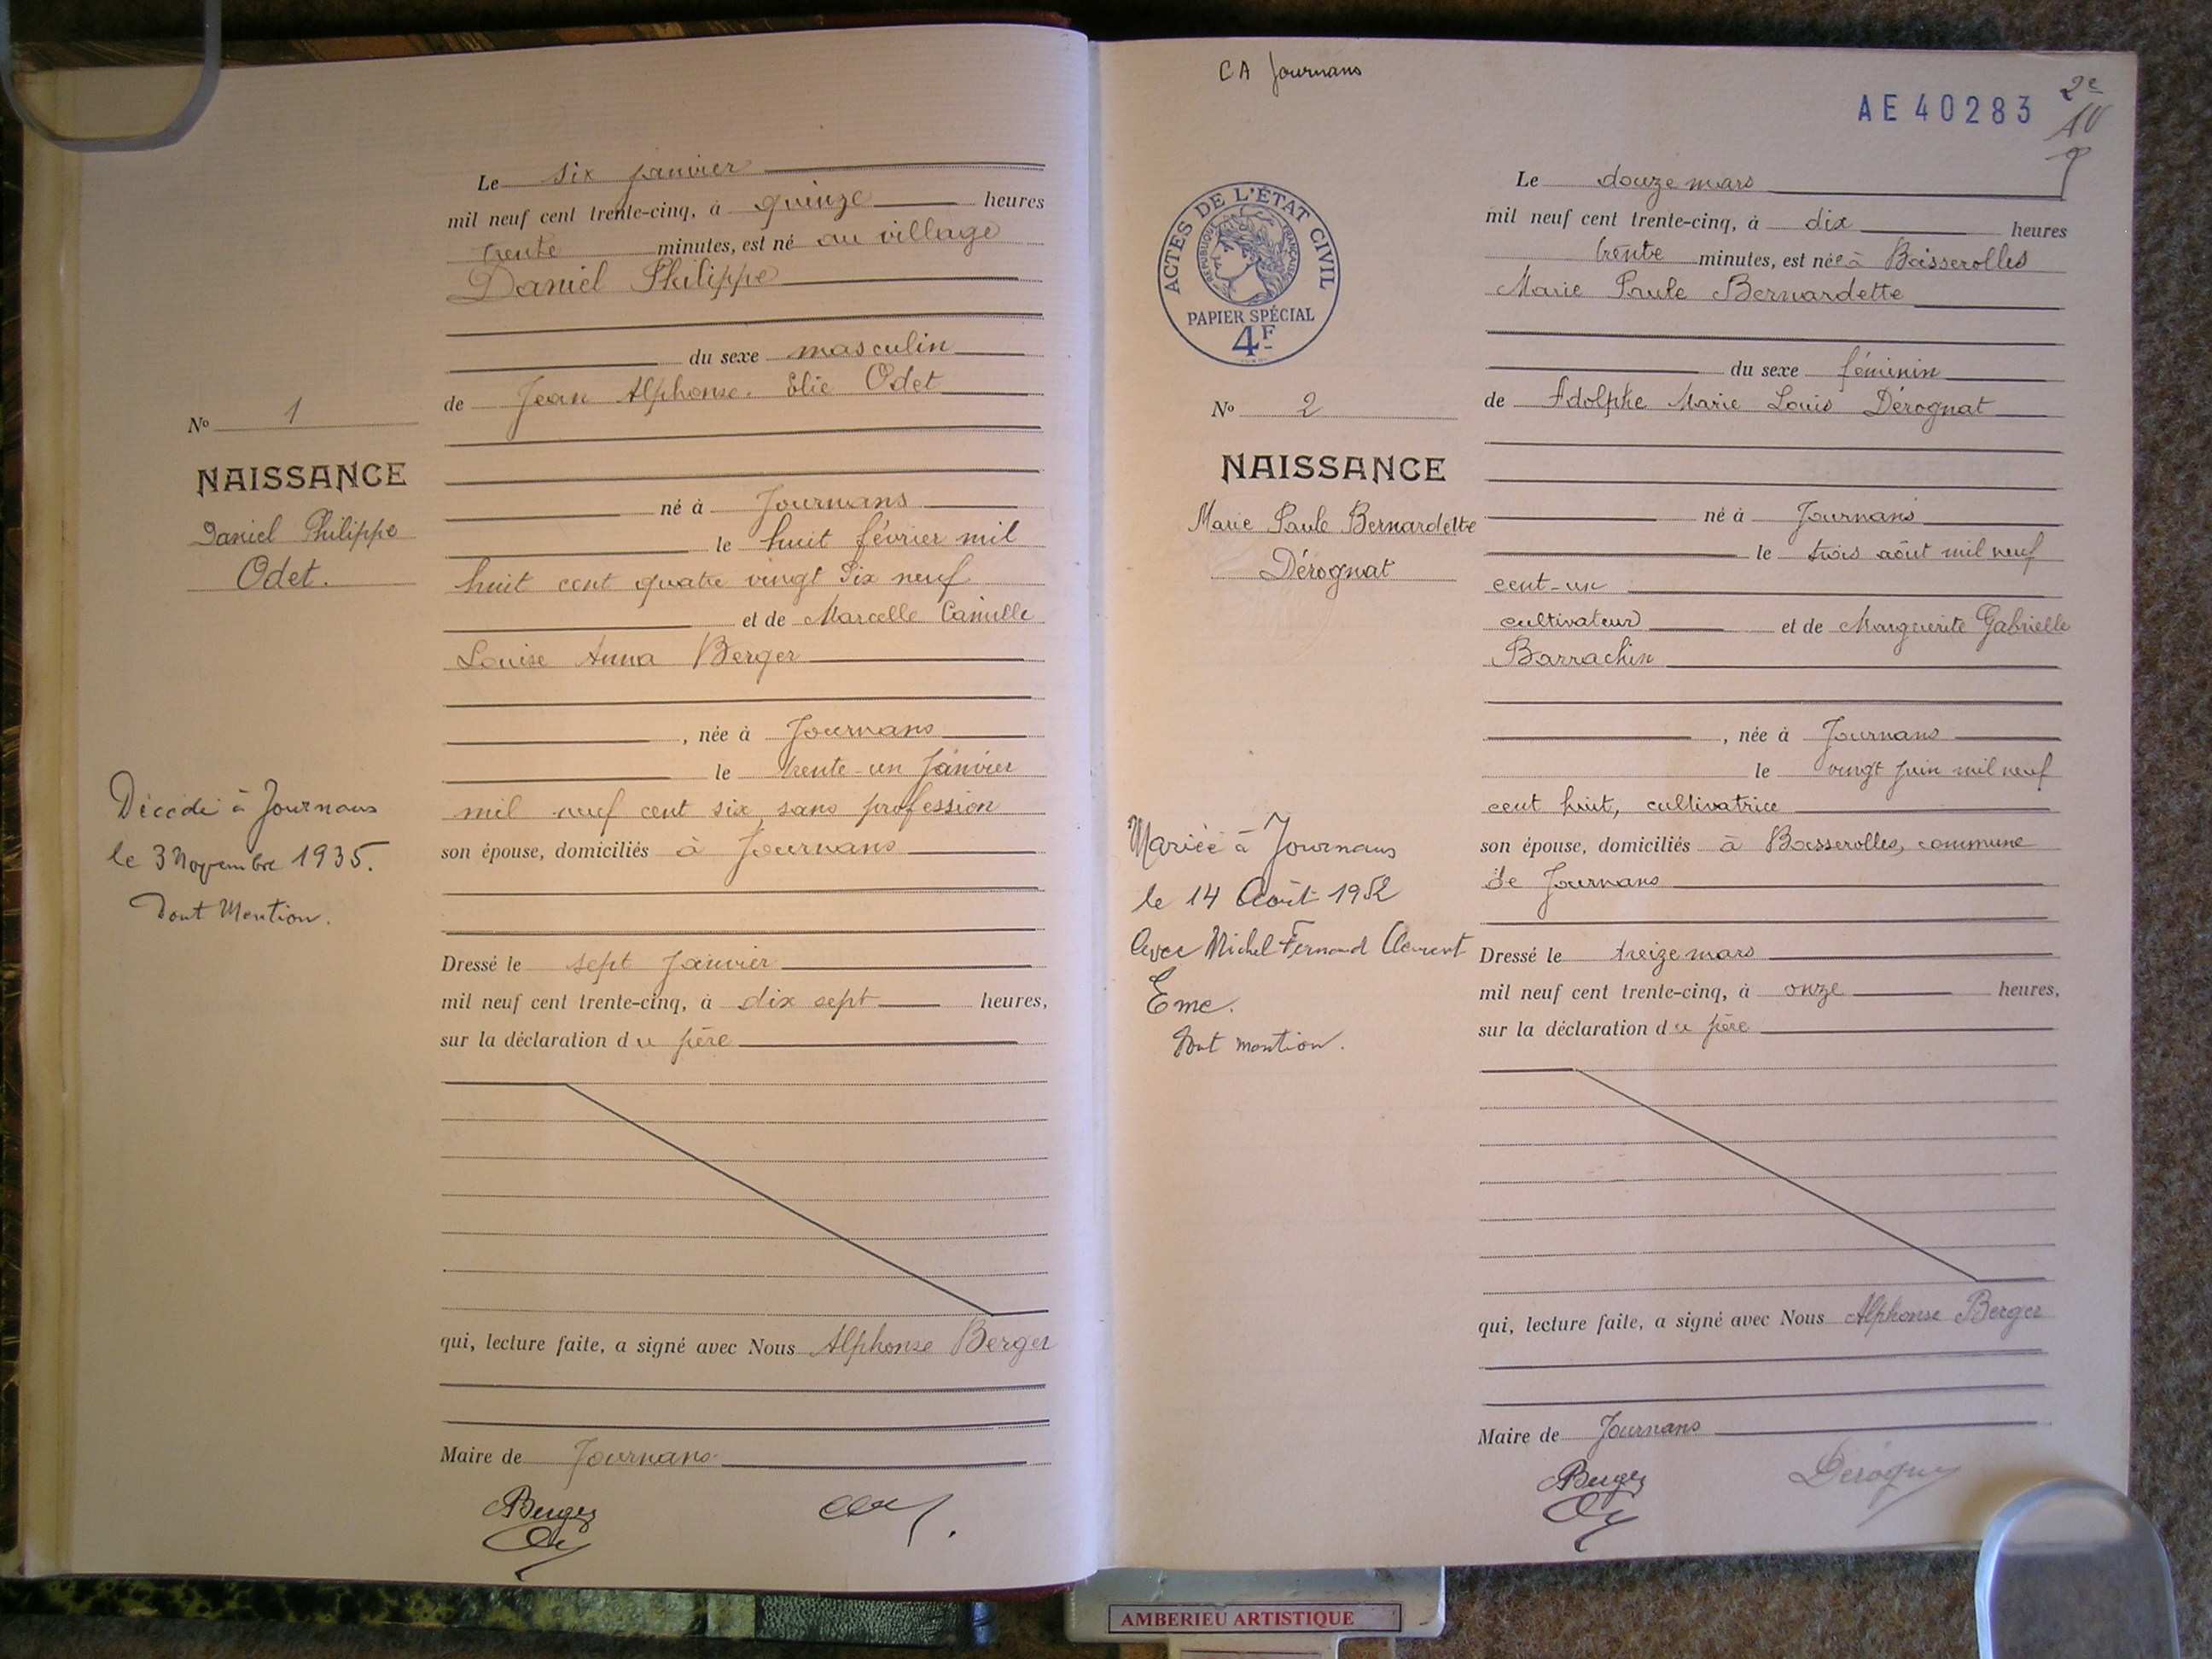 Le six janvier
mil neuf cent trente-cinq, à quinze heures
trente minutes, est né au village
Daniel Philippe
du sexe masculin
de Jean Alphonse Elie Odet
né à Journans
le huit février mil
huit cent quatre vingt dix neuf
et de Marcelle Camille
Louise Anna Berger
, née à Journans
le trente-un janvier
mil neuf cent six, sans profession
son épouse, domiciliés à Journans
Dressé le sept janvier
mil neuf cent trente-cinq, à dix sept heures,
sur la déclaration du père
qui, lecture faite, a signé avec Nous Alphonse Berger
Maire de Journans
Berger
No 1
NAISSANCE
Daniel Philippe
Odet.
Décédé à Journans
le 3 Novembre 1935.
Dont Mention.
CA Journans
AE 40283
2e
10
ACTES DE L'ÉTAT CIVIL
RÉPUBLIQUE FRANÇAISE
PAPIER SPÉCIAL
4F
No 2
NAISSANCE
Marie Paule Bernardette
Dérognat
Mariée à Journans
le 14 Août 1952
avec Michel Fernand Clément
Eme.
Dont mention.
Le douze mars
mil neuf cent trente-cinq, à dix heures
trente minutes, est née à Boisserolles
Marie Paule Bernardette
du sexe féminin
de Adolphe Marie Louis Dérognat
né à Journans
le trois août mil neuf
cent-un
cultivateur et de Marguerite Gabrielle
Barrachin
, née à Journans
le vingt juin mil neuf
cent huit, cultivatrice
son épouse, domiciliés à Boisserolles, commune
de Journans
Dressé le treize mars
mil neuf cent trente-cinq, à onze heures,
sur la déclaration du père
qui, lecture faite, a signé avec Nous Alphonse Berger
Maire de Journans
Berger
AMBERIEU ARTISTIQUE